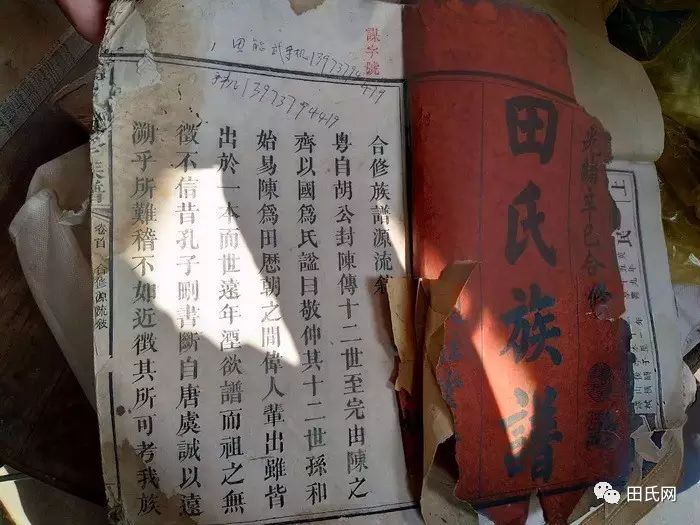 光緒辛巳合修
田氏族譜
謀字號
手机13973794419
合修族譜源流
粵自胡公封陳傳十二世至完由陳之
齊以國爲氏謚曰敬仲其十二世孫和
始易陳爲田歷朝之間偉人輩出雖皆
出於一本而世遠年湮欲譜而祖之無
徵不信昔孔子刪書斷自唐虞誠以遠
溯乎所難稽不如近徵其所可考我族
卷首 合修源流敘
田氏网